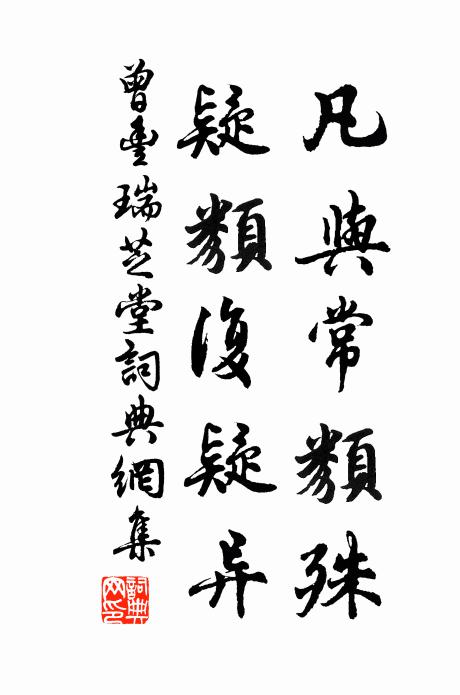 凡與常類殊
疑類復疑异
曾豐瑞芝堂詞典網集
詞典網印